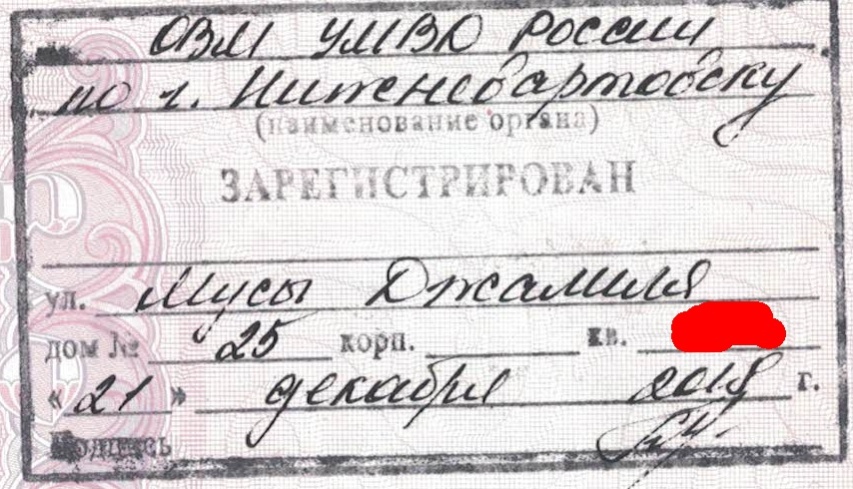 ОВМ УМВД России
по г. Нижневартовску
(наименование органа)
ЗАРЕГИСТРИРОВАН
ул. Мусы Джалиля
дом № 25 корп. кв.
« 21 » декабря 2018 г.
Подпись